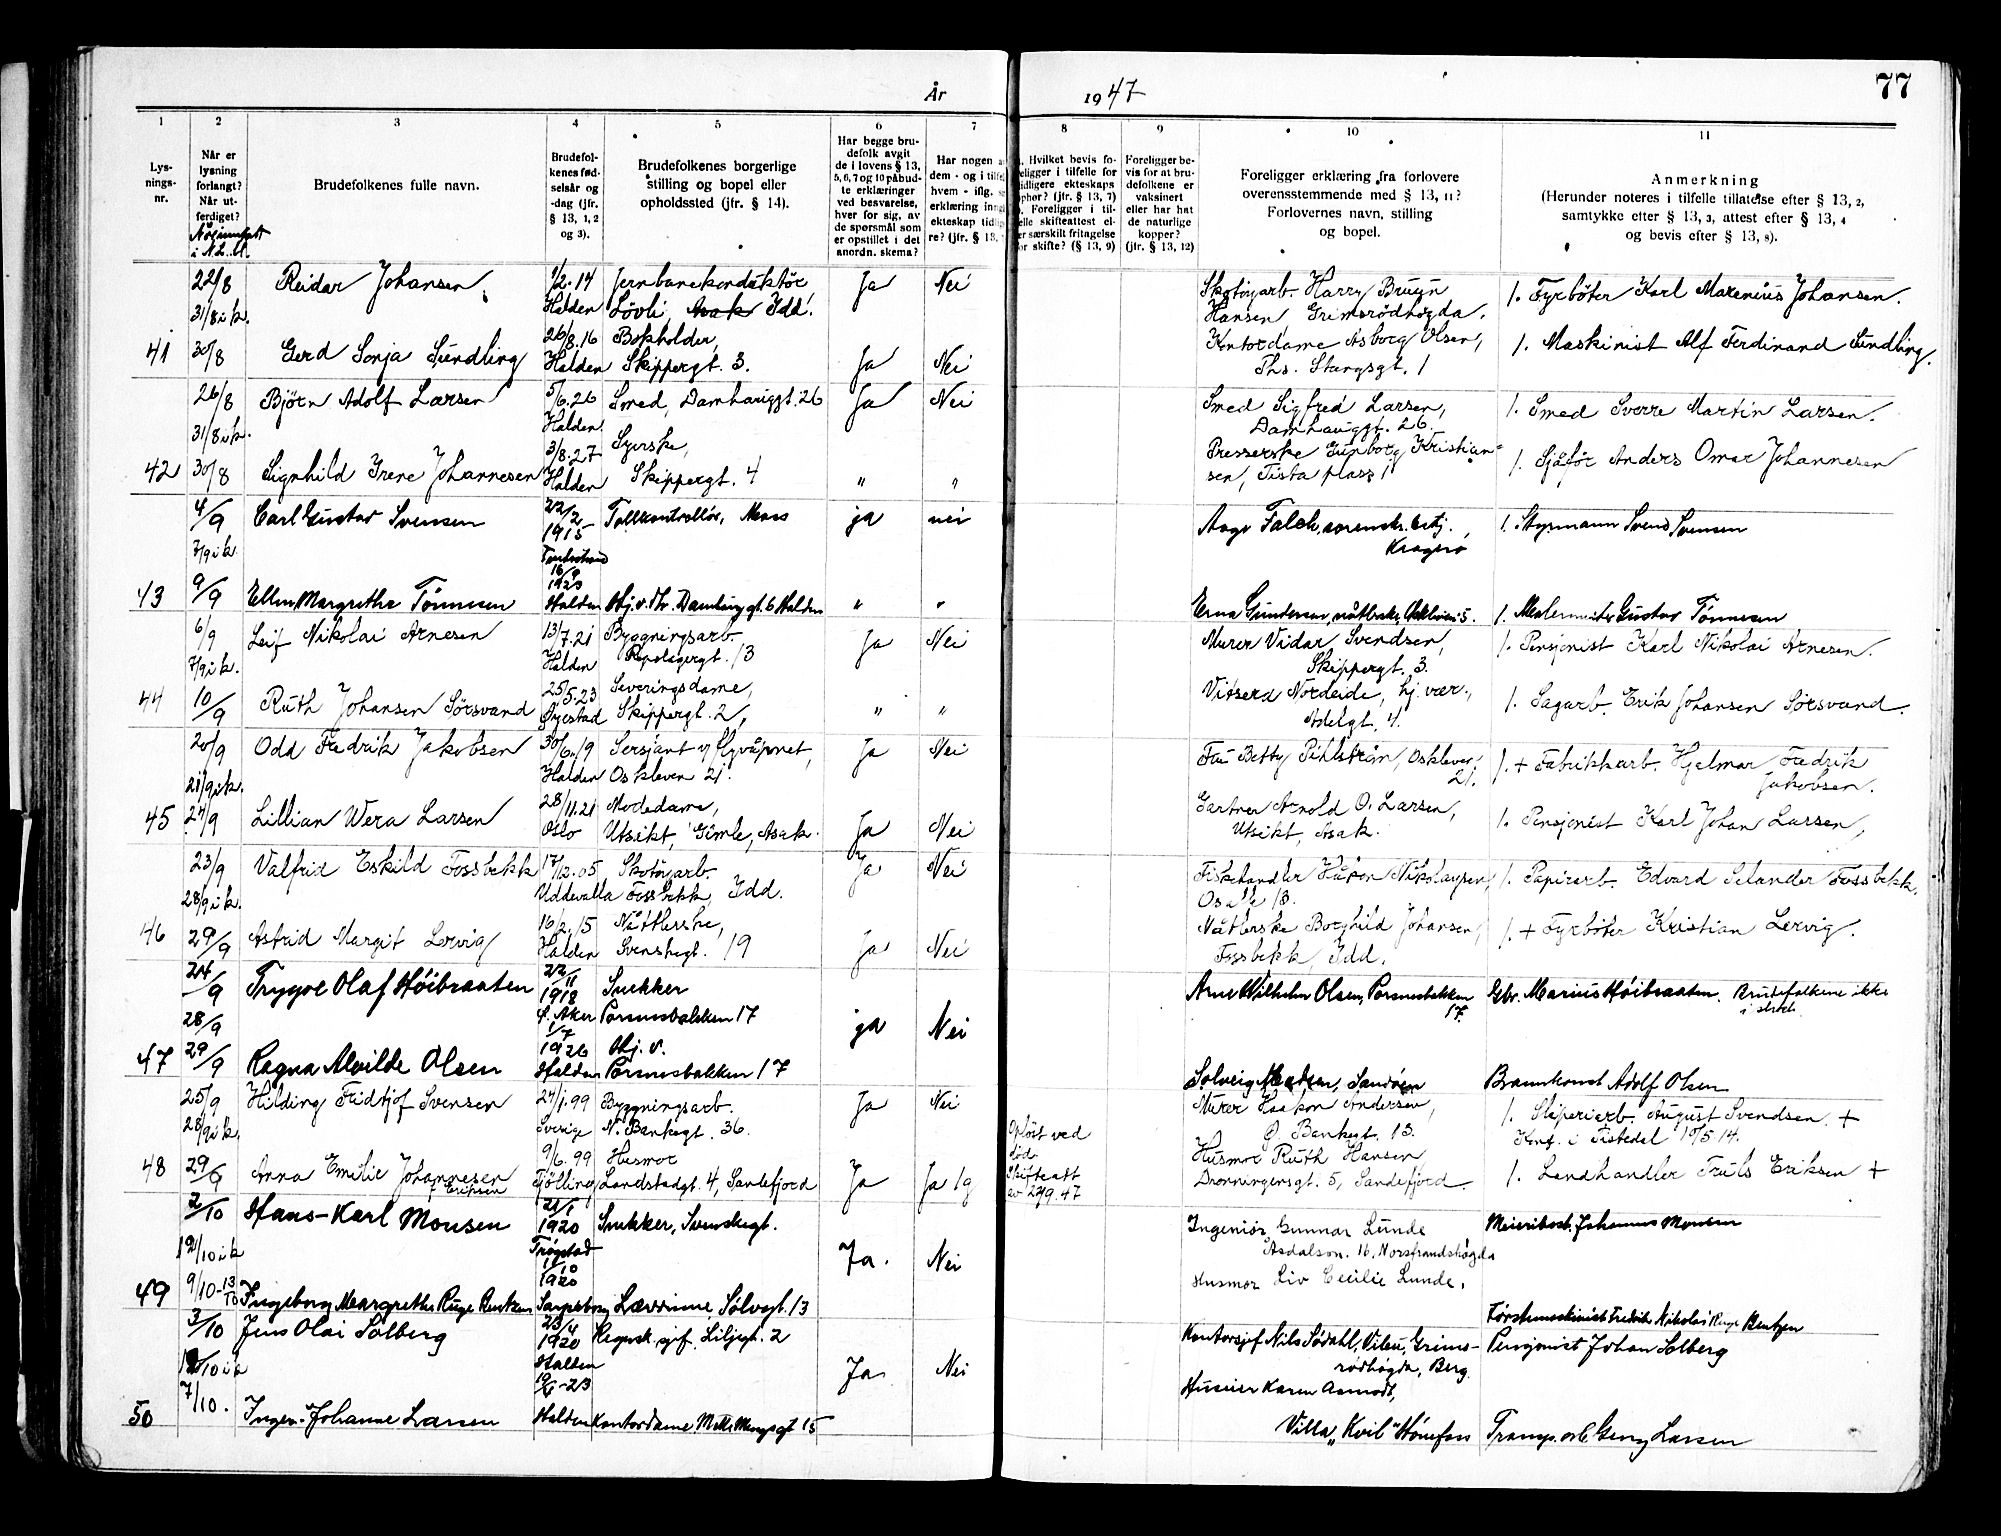 77
År 1947
1 2 3 4 5 6 7 8 9 10 11
Lys-
nings-
nr.
Når er
lysning
forlangt?
Når ut-
ferdiget?
Brudefolkenes fulle navn.
Brudefol-
kenes fød-
selsår og
-dag (jfr.
§ 13, 1, 2
og 3).
Brudefolkenes borgerlige
stilling og bopel eller
opholdssted (jfr. § 14).
Har begge bru-
defolk avgit
de i lovens § 13,
5, 6, 7 og 10 påbud-
te erklæringer
ved besvarelse,
hver for sig, av
de spørsmål som
er opstillet i det
anordn. skema?
Har nogen
dem - og i
hvem - ifig.
erklæring
ekteskap
re? (jfr. § 13,
Hvilket bevis fo-
religger i tilfelle for
tidligere ekteskaps
ophør? (jfr. § 13, 7)
Foreligger i til-
felle skifteattest el-
ler særskilt fritagelse
for skifte? (§ 13, 9)
Foreligger be-
vis for at bru-
defolkene er
vaksinert
eller har hat
de naturlige
kopper?
(jfr. § 13, 12)
Foreligger erklæring fra forlovere
overensstemmende med § 13, 11?
Forlovernes navn, stilling
og bopel.
Anmerkning
(Herunder noteres i tilfelle tillatelse efter § 13, 2,
samtykke efter § 13, 3, attest efter § 13, 4
og bevis efter § 13, 8).
22/8 Reidar Johansen 1/2.14 Jernbanekonduktör Ja Nei Skotöyarb. Harry Bruun /. Fyrböter Karl Maxenius Johansen.
31/8 i k. Halden Lövli, Asak Idd. Hansen Grimsrödhögda.
26/8.16 Bokholder, Kontordame Asborg Olsen,
41 30/8 Gerd Sonja Sundling Halden Skippergt. 3. Ja Nei Ths. Stangsgt. 1 /. Maskinist Alf Ferdinand Sundling.
26/8 Björn Adolf Larsen 5/6.26 Smed, Damhauggt. 26 Ja Nei Smed Sigfred Larsen, /. Smed Sverre Martin Larsen.
31/8 i k. Halden Damhauggt. 26.
3/8.27 Syerske, Presserske Gunborg Kristian-
42 30/8 Signhild Irene Johannesen Halden Skippergt. 4 " " sen, Tista plass 1 /. Sjåför Anders Omar Johannesen
4/9 Carl Gustav Svensen 22/2 1915 Tollkontrollör, Moss ja nei Aage Falch, Kragerø /. Styrmann Svend Svensen
7/9 i k.
16/9 1923
43 9/9 Ellen Margrethe Tönnesen Halden Hj. v. Damhaug gt. 6 Halden " " Erna Gundersen, nåtlerske, Oskleiva 5. /. Malermester Gustav Tönnesen
6/9 Leif Nikolai Arnesen 13/7.21 Byggningsarb. Ja Nei Murer Vidar Svendsen, /. Pensjonist Karl Nikolai Arnesen.
7/9 i k. Halden Repslagergt. 13 Skippergt. 3.
25/5.23 Serveringsdame, Nordeide, hj. vær.,
44 10/9 Ruth Johansen Sörsvand Öyestad Skippergt. 2, " " Adelgt. 4. /. Sagarb. Erik Johansen Sörsvand.
20/9 Odd Fredrik Jakobsen 30/6.19 Sersjant v/ flyvåpnet, Ja Nei Fru Betty Pihlström, Oskleven 21. /. + Fabrikkarb. Hjalmar Fredrik
21/9 i k. Halden Oskleven 21. Jakobsen.
28/11.21 Motedame, Gartner Arnold O. Larsen,
45 24/9 Lillian Wera Larsen Oslo Utsikt, Gimle, Asak. Ja Nei Utsikt, Asak. /. Pensjonist Karl Johan Larsen,
23/9 Valfrid Eskild Fossbekk 17/12.05 Skotöyarb. Ja Nei Fiskehandler Håkon Nikolaysen, /. Papirarb. Edvard Selander Fossbekk.
28/9 i k. Uddevalla Fossbekk, Idd. 13.
16/2.15 Nåtlerske, Nåtlerske Borghild Johansen,
46 29/9 Astrid Margit Lervig Halden Svenskegt. 19 Ja Nei Fossbekk, Idd. /. + Fyrböter Kristian Lervig.
24/9 Trygve Olaf Höibraaten 22/11 1918 Snekker Arne Wilhelm Olsen, Porsnesbakken 17. Gbr. Marius Höibraaten. Brudefolkene ikke
28/9 Ö. Aker Porsnesbakken 17 ja Nei
1/7 1926 Hj. v.
47 29/9 Ragna Alvilde Olsen Halden Porsnesbakken 17 Solveig Madsen, Sandöen Brannkonst Adolf Olsen
25/9 Hilding Fridtjof Svensen 24/1.99 Byggningsarb. Ja Nei Murer Haakon Andersen, /. Sliperiarb. August Svendsen. +
28/9 i k. Sverige N. Bankegt. 36. Oplöst ved död. Ö Bankegt. 13. Konf. i Tistedal 10/5.14.
9/6.99 Husmor Skifteatt Husmor Ruth Hansen
48 29/9 Anna Emilie Johannesen f. Eriksen Tjölling Landstadgt. 4, Sandefjord Ja Ja 1g av 29/9.47 Dronningensgt. 5, Sandefjord. /. Landhandler Truls Eriksen +
2/10 Hans-Karl Monsen 21/1 1920 Snukker, Svenskegt. Ingeniör Gunnar Lunde Meieribest. Johannes Monsen
12/10 i k Trögstad Ja. Nei Åsdalson. 16, Norstrandshögda
11/10 1920 Husmor Liv Cecilie Lunde.
49 9/10-13/10 Ingeborg Margrethe Ruge Bentzen Sarpsborg Lærerinne, Sölvgt. 13 Förstemaskinist Fredrik Nikolai Ruge Bentzen
3/10 Jens Olai Solberg 23/4 1920 Regnsk. sjef. Liljegt. 2 Kontorsjef Nils Södahl, Grims- Pensjonist Johan Solberg
12/10 i k Halden Ja Nei rödhögda, Berg.
19/1-23 Huseier Karen Asmodt,
50 7/10. Inger-Johanne Larsen Halden Kontordame 15 Villa „Kvil" Hönefoss Transp. arb. Larsen